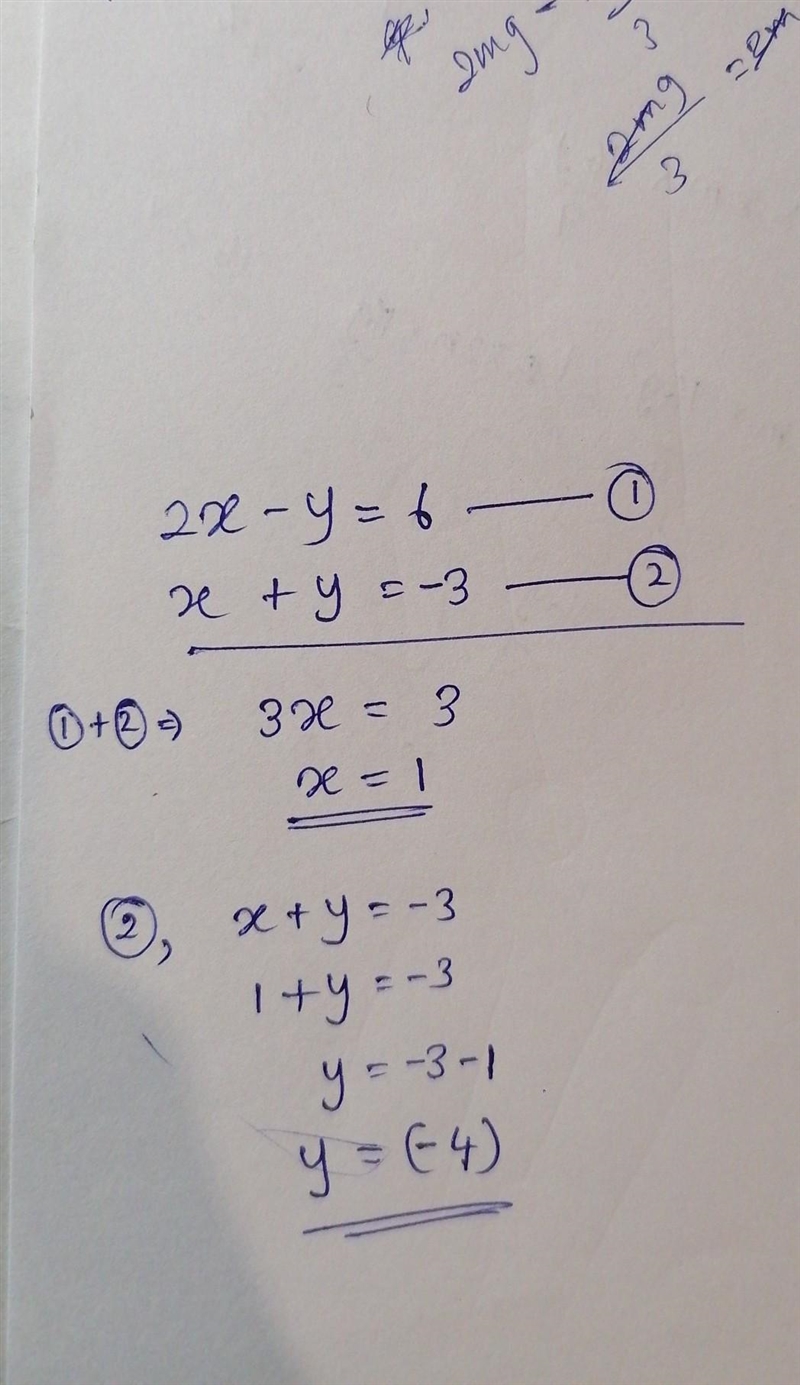 2mg
3
2mg
3
2x - y = 6 —— ①
x + y = -3 —— ②
①+② ⇒ 3x = 3
x = 1
②, x + y = -3
1 + y = -3
y = -3 - 1
y = (-4)